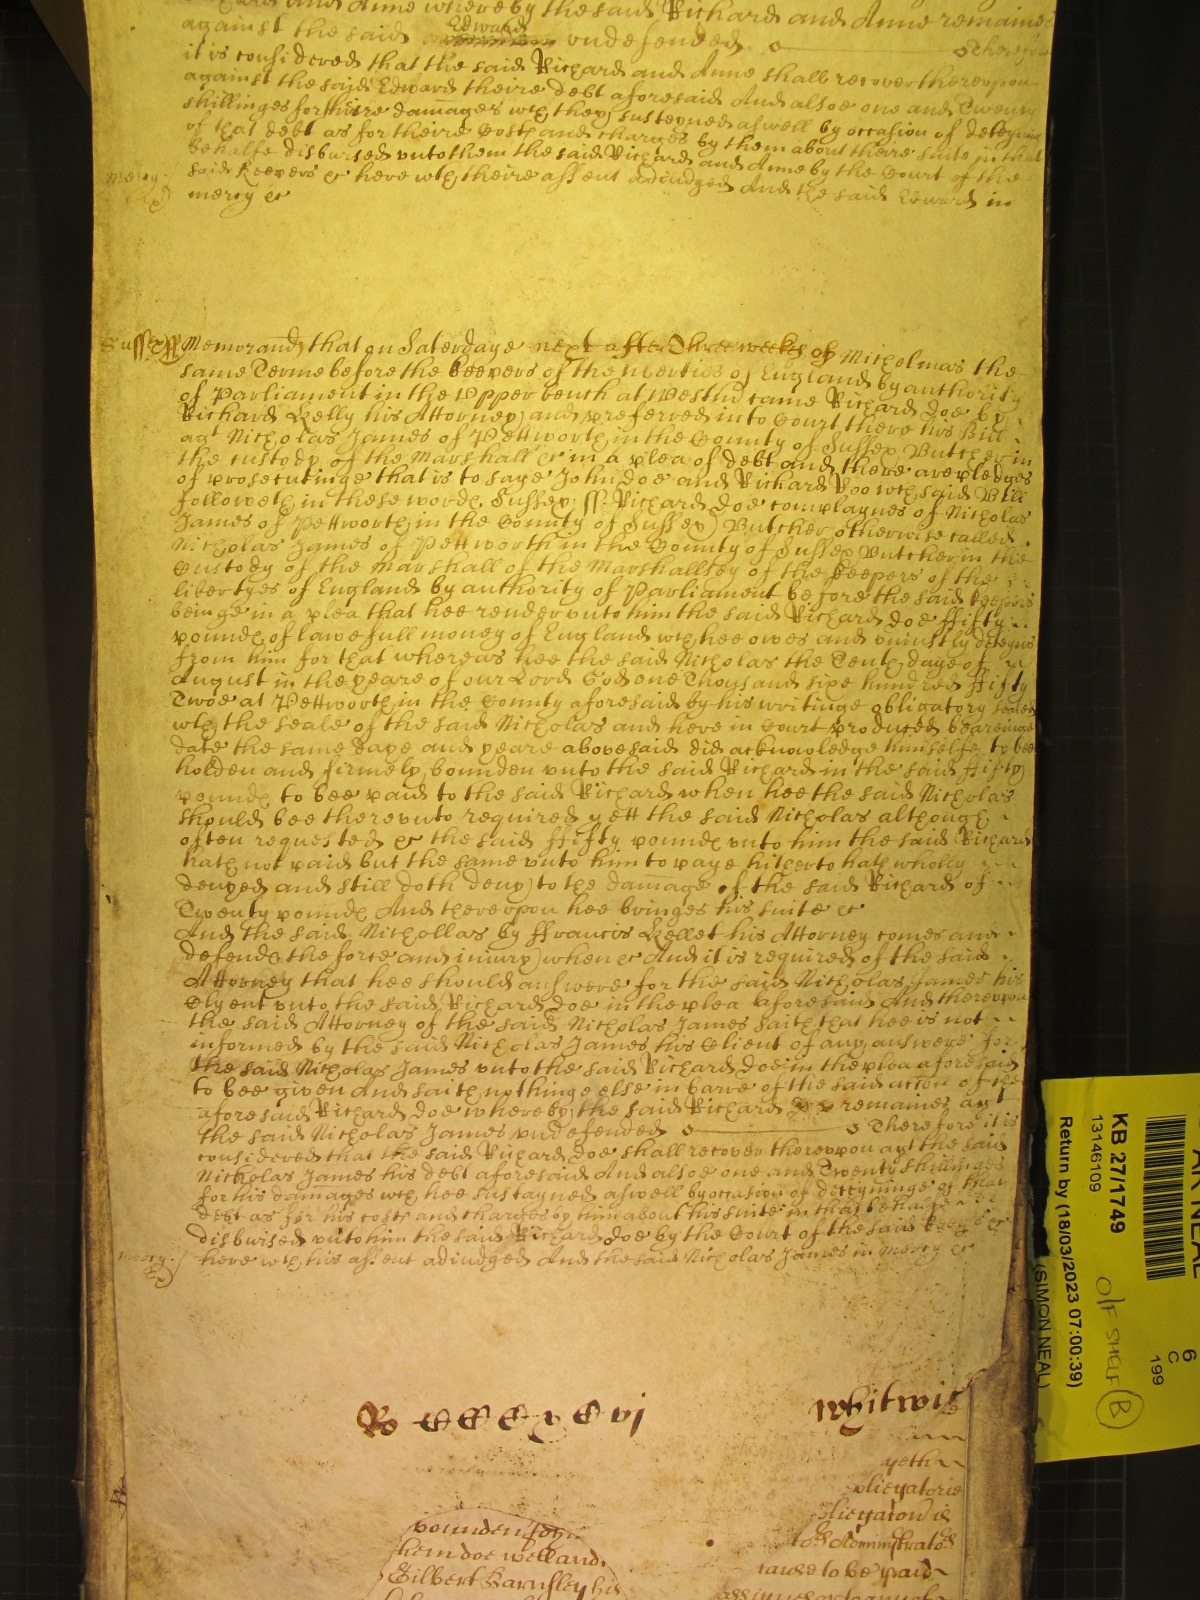 and Anne whereby the said Richard and Anne remaines
against the said Edward vndefended Therefore
it is considered that the said Richard and Anne shall recover thereupon
against the said Edward theire debt aforesaid And alsoe one and Twenty
shillinges for theire damages wch they susteyned aswell by occasion of deteyning
of that debt as for theire Costs and charges by them about theire suite in that
behalfe disbursed vnto them the said Richard and Anne by the Court of the
said Keepers &c here wth theire assent adiudged And the said Edward in
mercy &c
mercy
Sussex ss Memorand that on Saterdaye next after Three weekes of Michelmas the
same Terme before the Keepers of the liberties of England by authority
of Parliament in the Vpper bench at Westmr came Richard Doe by
Richard Kelly his Attorney and preferred into Court there his Bill
agt Nicholas James of Pettworth in the County of Sussex Butcher in
the custody of the Marshall &c in a plea of debt and there are pledges
of prosecutinge that is to saye John Doe and Richard Roo wch said Bill
followeth in these words Sussex ss. Richard Doe complaynes of Nicholas
James of Pettworth in the County of Sussex Butcher otherwise called
Nicholas James of Pettworth in the County of Sussex Butcher in the
Custody of the Marshall of the Marshallsey of the Keepers of the
libertyes of England by authority of Parliament before the said Keepers
beinge in a plea that hee render vnto him the said Richard Doe ffifty
pounds of lawfull money of England wch hee owes and vniustly deteynes
from him for that whereas hee the said Nicholas the Tenth daye of
August in the yeare of our Lord God one Thousand sixe hundred ffifty
Twoe at Pettworth in the County aforesaid by his writinge obligatory sealed
wth the seale of the said Nicholas and here in Court produced beareinge
date the same daye and yeare abovesaid did acknowledge himselfe to bee
holden and firmely bounden vnto the said Richard in the said ffifty
pounds to bee paid to the said Richard when hee the said Nicholas
should bee therevnto required yett the said Nicholas although
often requested &c the said ffifty pounds vnto him the said Richard
hath not paid but the same vnto him to paye hitherto hath wholly
denyed and still doth deny to the damage of the said Richard of
Twenty pounds And therevpon hee bringes his suite &c
And the said Nichollas by ffrancis Kellet his Attorney comes and
defends the force and iniury when &c And it is required of the said
Attorney that hee should answere for the said Nicholas James his
Clyent vnto the said Richard Doe in the plea aforesaid And therevpon
the said Attorney of the said Nicholas James saith that hee is not
informed by the said Nicholas James his Client of any answere for
the said Nicholas James vnto the said Richard Doe in the plea aforesaid
to bee given And saith nothinge else in barre of the said accon of the
aforesaid Richard Doe whereby the said Richard Doe remaines agt
the said Nicholas James vndefended Therefore it is
considered that the said Richard Doe shall recover therevpon agt the said
Nicholas James his debt aforesaid And alsoe one and Twenty shillinges
for his damages wch hee sustayned aswell by occasion of deteyninge of that
debt as for his costs and charges by him about his suite in that behalfe
disbursed vnto him the said Richard Doe by the Court of the said Keepers &c
here wth his assent adiudged And the said Nicholas James in mercy &c
mercy
Ro CCCxCvj
Whitwic
yeth
oligatorie
to be paid
pounden John
them doe well and
Gilbert Barnsley his
NEAL
KB 27/1749
13146109
Return by (18/03/2023 07:00:39)
(SIMON NEAL)
6
C
199
O/F SHELF
B